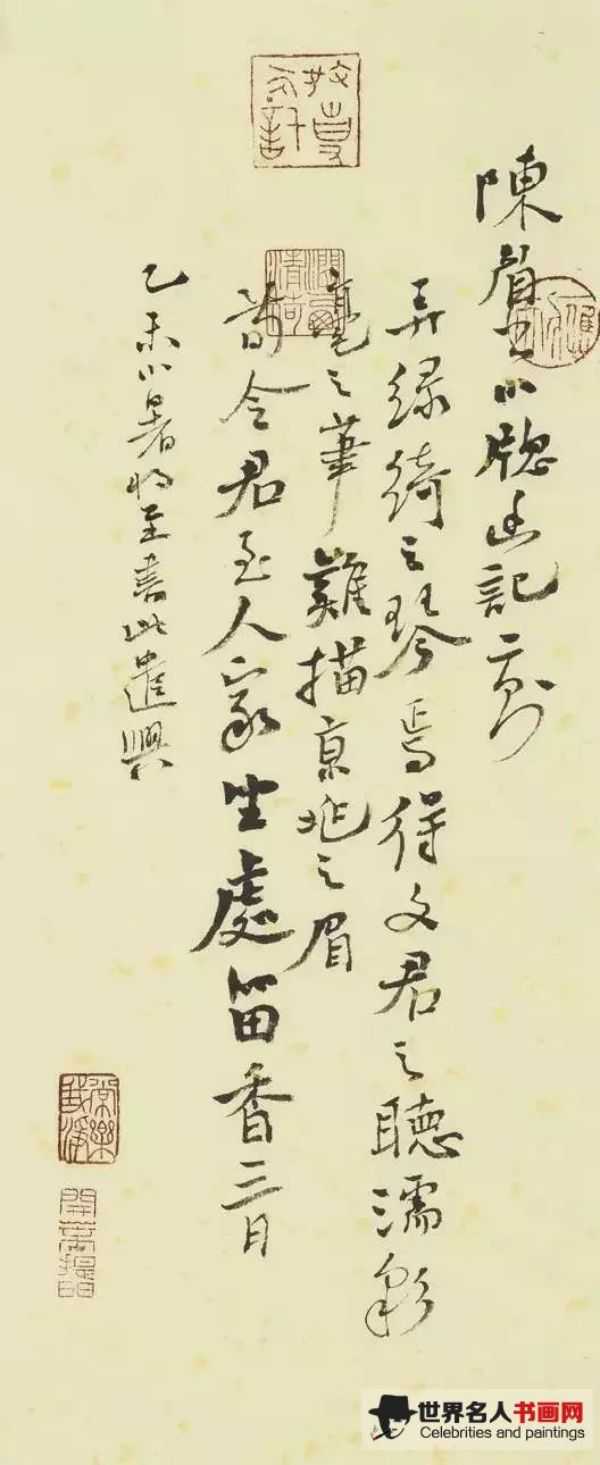 陳眉公小牕幽記二則
弄緑綺之琴焉得文君之聽濡彩
毫之筆難描京兆之眉
昔令君至人家坐處留香三日
乙未小暑將至書此遣興
常樂我淨
世界名人书画网
Celebrities and paintings